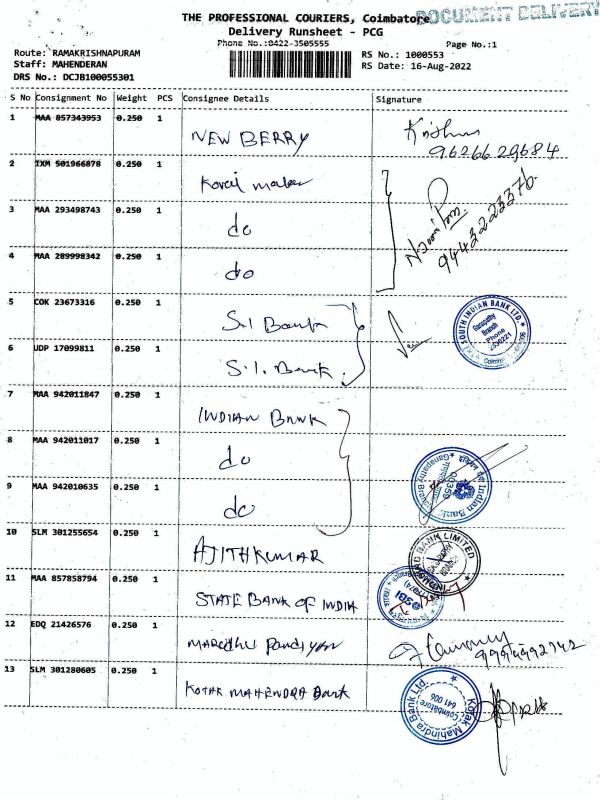 DOCUMENT DELIVERY
THE PROFESSIONAL COURIERS, Coimbatore
Delivery Runsheet - PCG
Phone No.:0422-3505555
Page No.:1
Route: RAMAKRISHNAPURAM
RS No.: 1000553
Staff: MAHENDERAN
RS Date: 16-Aug-2022
DRS No.: DCJB100055301
S No Consignment No Weight PCS Consignee Details Signature
1 MAA 857343953 0.250 1 NEW BERRY
9626629684
2 IXM 501966878 0.250 1
3 MAA 293498743 0.250 1 do
9443223376
4 MAA 289998342 0.250 1 do
5 COK 23673316 0.250 1 S.I Bank
SOUTH INDIAN BANK LTD. Ganapathy Branch Phone
6 UDP 17099811 0.250 1 S.I. Bank
7 MAA 942011847 0.250 1 INDIAN BANK
8 MAA 942011017 0.250 1 do
9 MAA 942010635 0.250 1 do
Indian Bank Ganapathy
10 SLM 301255654 0.250 1 AJITHKUMAR
BANK LIMITED
11 MAA 857858794 0.250 1 STATE BANK OF INDIA
SBI
12 EDQ 21426576 0.250 1 Maruthu Pandiyan
13 SLM 301280605 0.250 1 KOTAK MAHENDRA Bank
Kotak Mahindra Bank Ltd. Coimbatore 641 006